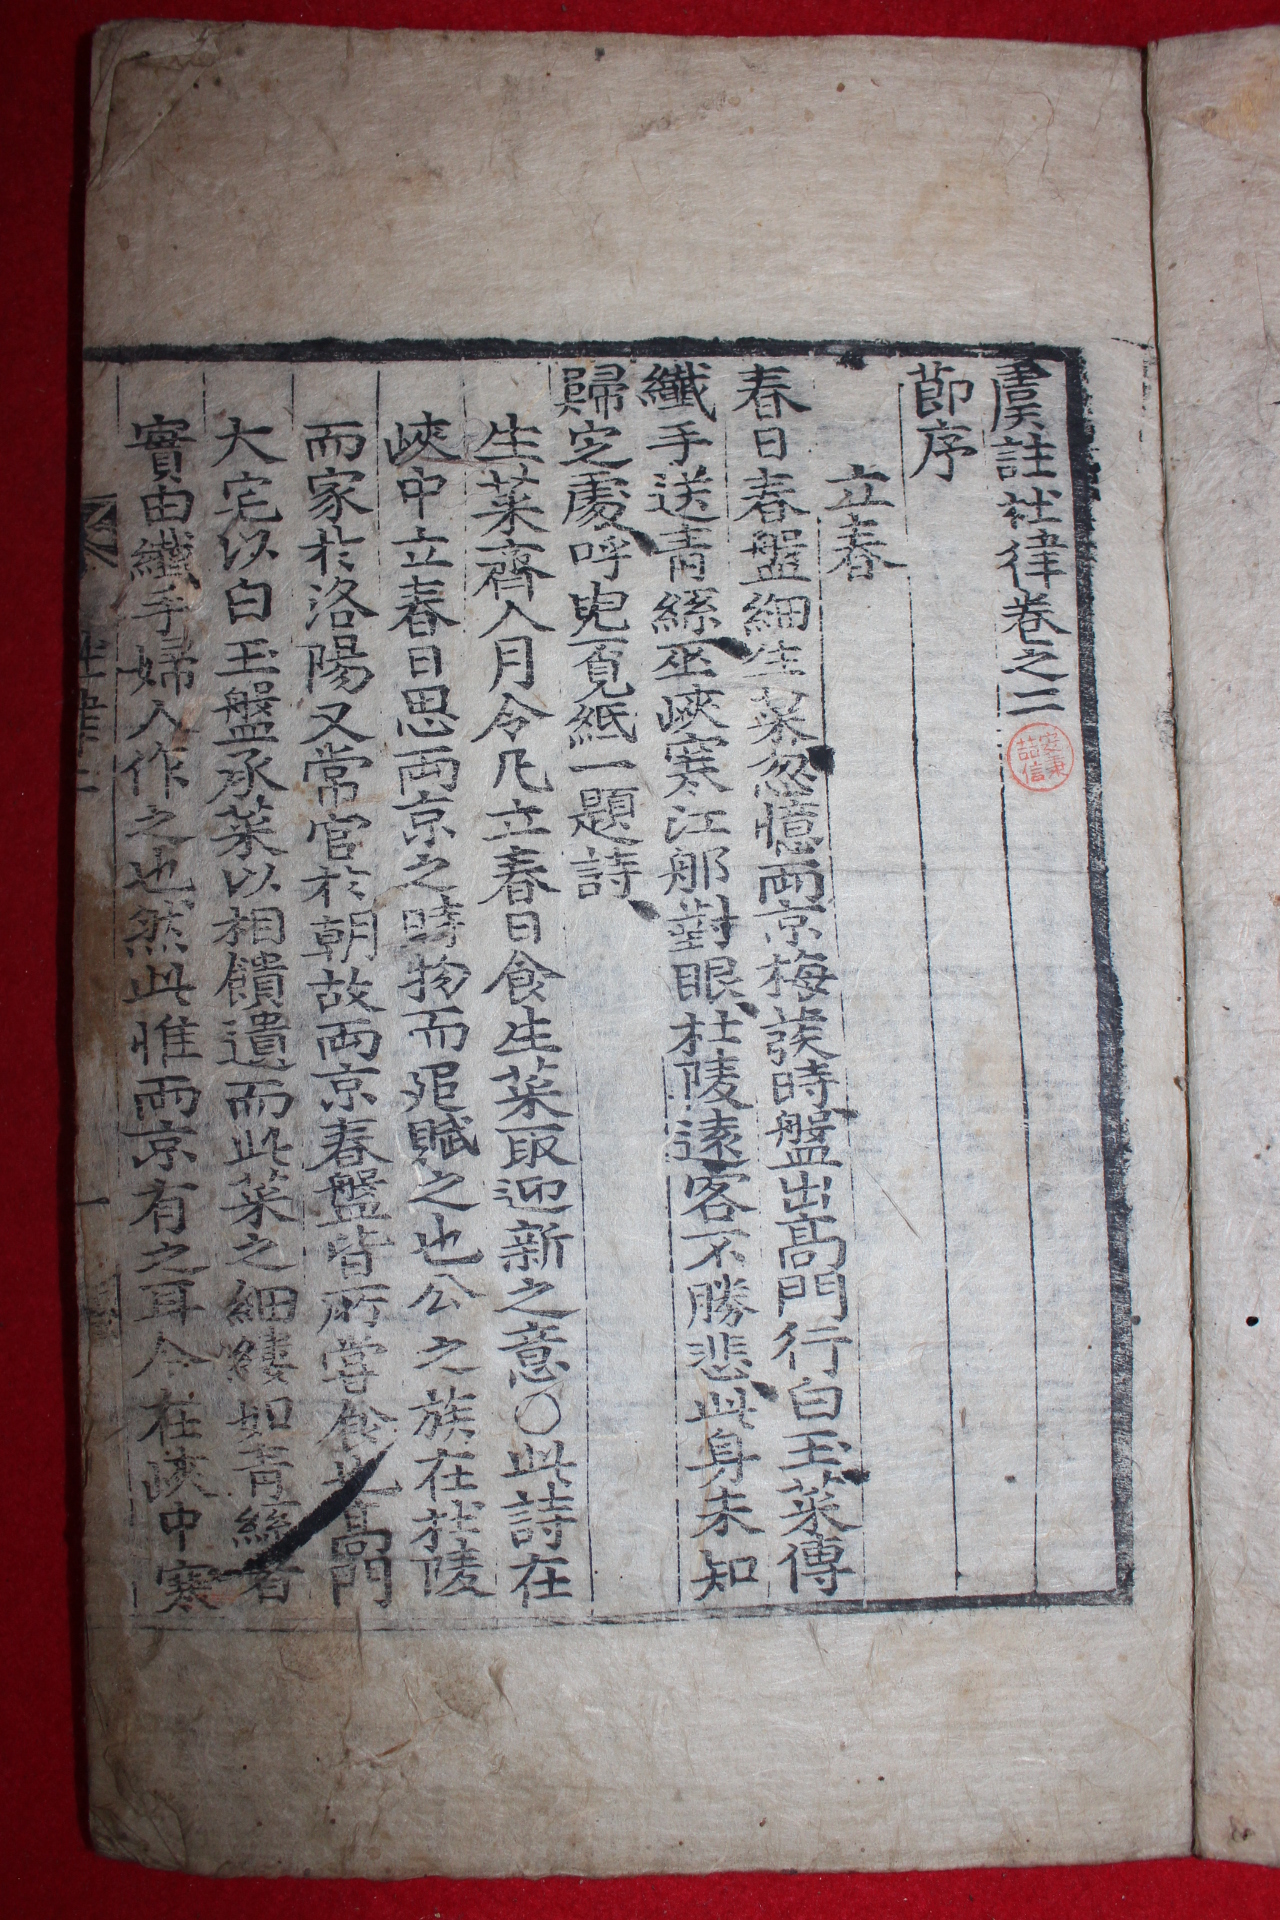 虞註杜律卷之二
節序
立春
春日春盤細生菜忽憶兩京梅發時盤出高門行白玉菜傳
纖手送青絲巫峽寒江那對眼杜陵遠客不勝悲此身未知
歸定處呼兒覓紙一題詩
生菜齊人月令凡立春日食生菜取迎新之意○此詩在
峽中立春日思兩京之時物而追賦之也公之族在杜陵
而家於洛陽又常官於朝故兩京春盤皆所嘗食也高門
大宅以白玉盤承菜以相饋遺而此菜之細縷如青絲者
實由纖手婦人作之也然此惟兩京有之耳今在峽中寒
杜律二
一